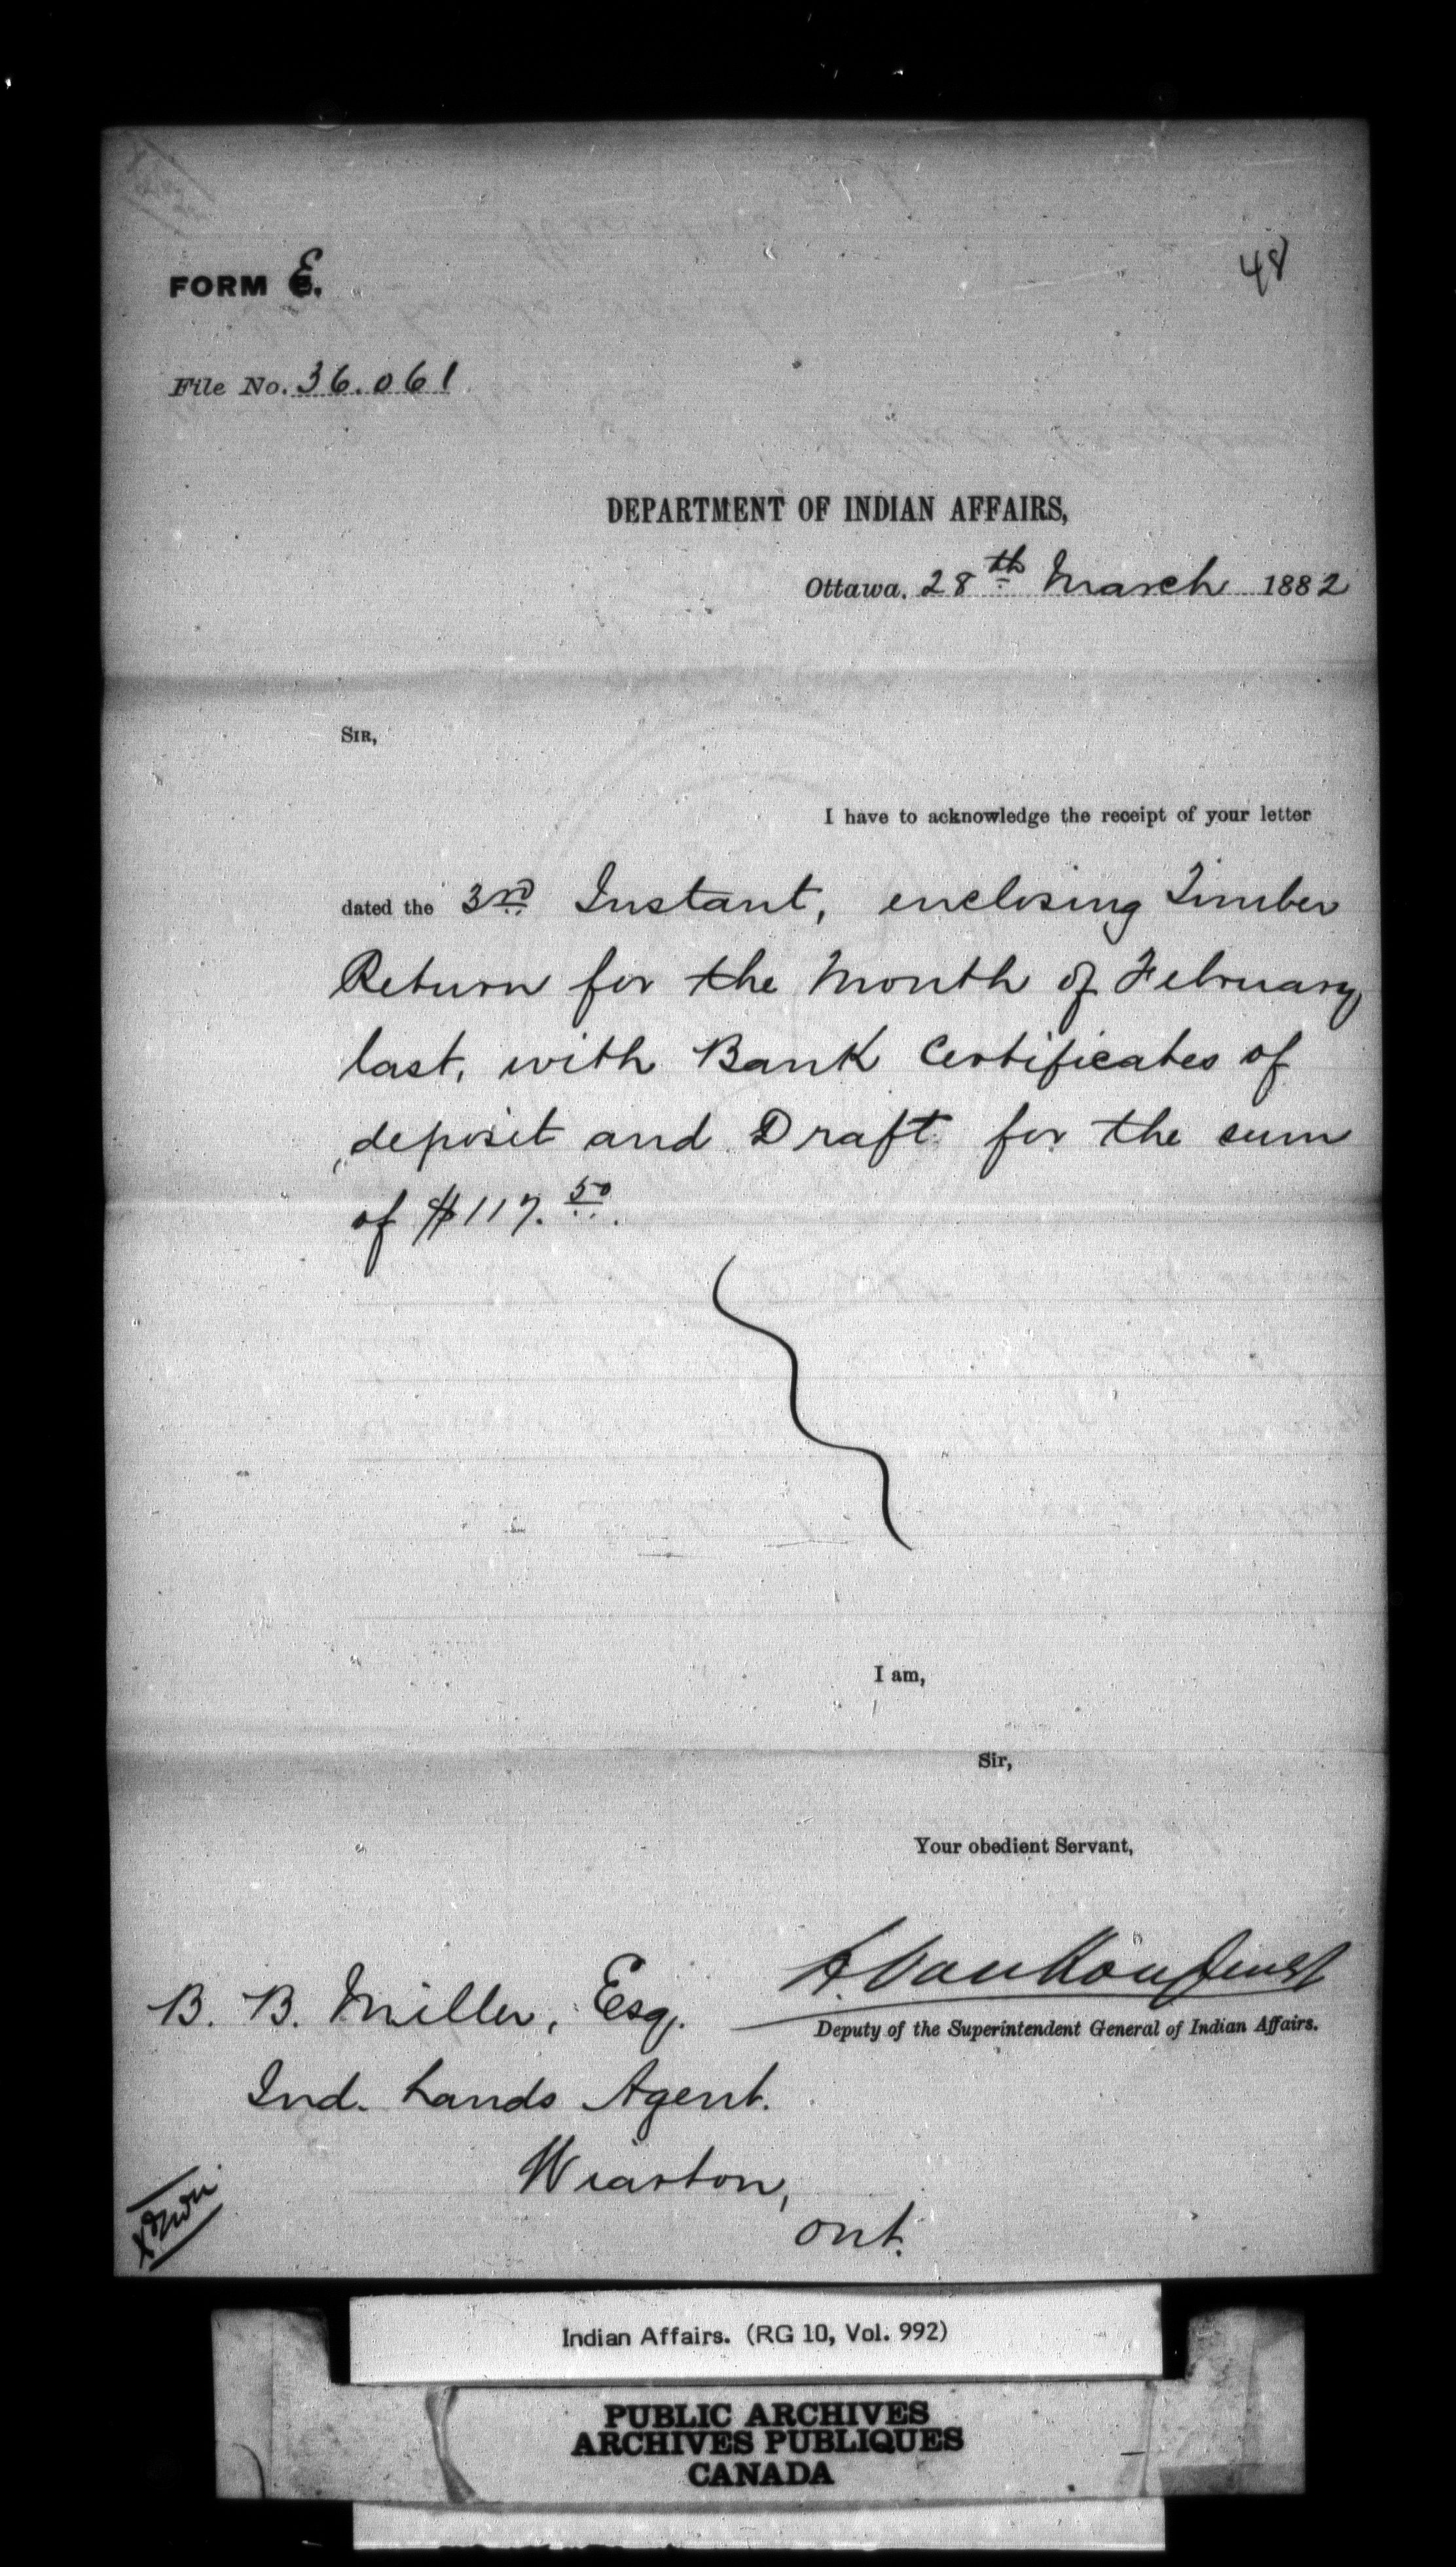 FORM E.
48
File No. 36.061
DEPARTMENT OF INDIAN AFFAIRS,
Ottawa, 28th March 1882
SIR,
I have to acknowledge the receipt of your letter
dated the 3rd Instant, enclosing Timber
Return for the Month of February
last, with Bank Certificates of
deposit and Draft for the sum
of $117.50.
I am,
Sir,
Your obedient Servant,
L. VanKoughnet
Deputy of the Superintendent General of Indian Affairs.
B. B. Miller, Esq.
Ind. Lands Agent.
Wiarton,
Ont.
Indian Affairs. (RG 10, Vol. 992)
PUBLIC ARCHIVES
ARCHIVES PUBLIQUES
CANADA